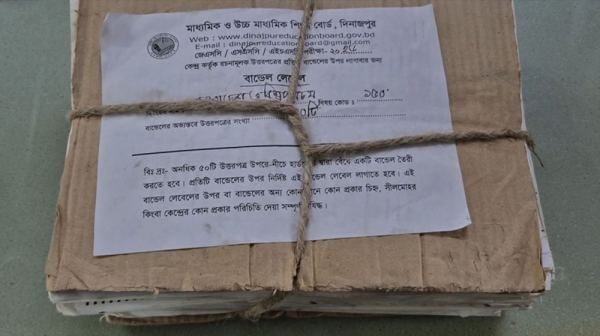 মাধ্যমিক ও উচ্চ মাধ্যমিক শিক্ষা বোর্ড, দিনাজপুর
Web : www.dinajpureducationboard.gov.bd
E-mail : dinajpureducationboard@gmail.com
জেএসসি / এসএসসি / এইচএসসি পরীক্ষা- ২০
কেন্দ্র কর্তৃক রচনামূলক উত্তরপত্রের প্রতিটি বান্ডেলের উপর লাগাবার জন্য
বান্ডেল লেবেল
বিষয় কোড :
বান্ডেলের অভ্যন্তরে উত্তরপত্রের সংখ্যা টি
বিঃ দ্রঃ- অনধিক ৫০টি উত্তরপত্র উপরে-নীচে দ্বারা বেঁধে একটি বান্ডেল তৈরী
করতে হবে। প্রতিটি বান্ডেলের উপর নির্দিষ্ট এই বান্ডেল লেবেল লাগাতে হবে। এই
বান্ডেল লেবেলের উপর বা বান্ডেলের অন্য কোন কোন প্রকার চিহ্ন, সীলমোহর
কিংবা কেন্দ্রের কোন প্রকার পরিচিতি দেয়া সম্পূর্ণ